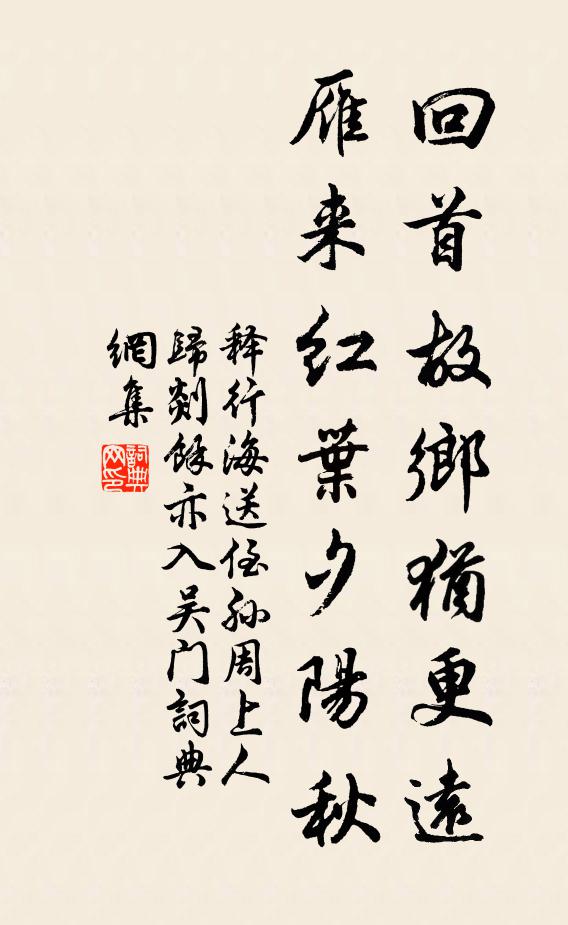 回首故鄉猶更遠
雁来紅葉夕陽秋
释行海送侄孙周上人
歸剡餘亦入吴门詞典
網集
詞典
网印